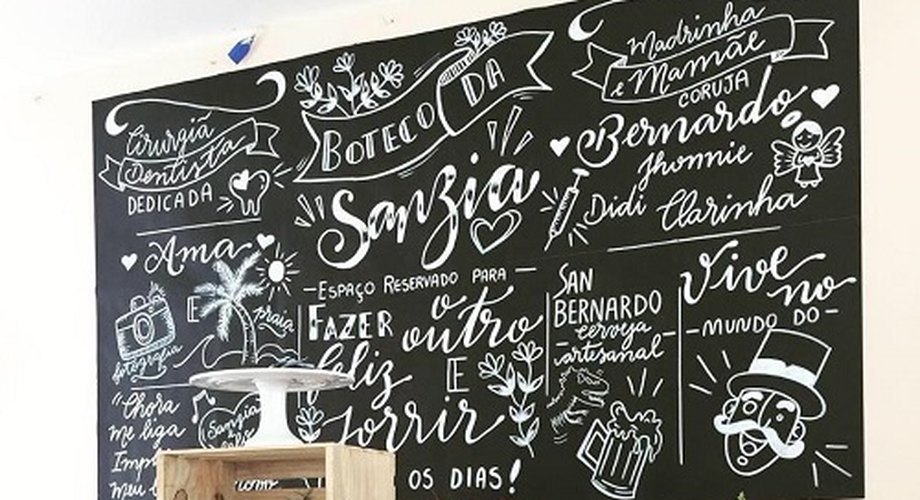 Cirurgiã
Dentista
DEDICADA
Ama
E
praia
fotografia
"Chora
me liga
meu
Sanzia
BOTECO DA
Sanzia
-ESPAÇO RESERVADO PARA-
FAZER o outro
feliz E
sorrir
OS DIAS!
Madrinha
e Mamãe
CORUJA
Bernardo
Jhonnie
Didi Clarinha
SAN
BERNARDO
-cerveja-
artesanal
Vive
no
-MUNDO DO-